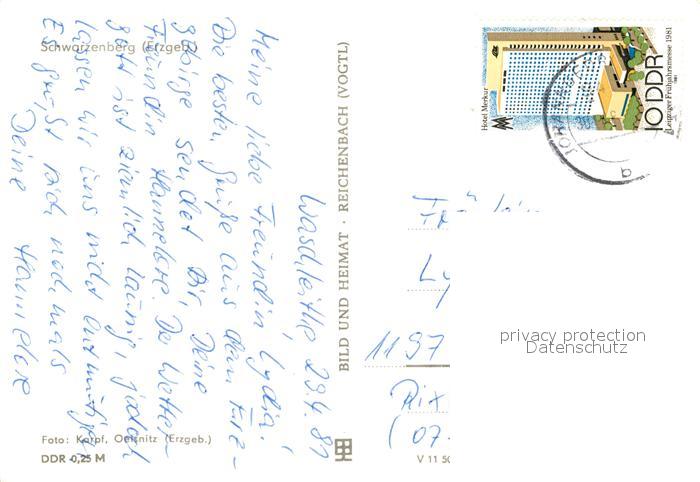 Schwarzenberg (Erzgeb.)
Waschleithe, 29.4. 81
Meine liebe Freundin Lydia!
Die besten Grüße aus dem Erz-
gebirge sendet Dir Deine
Freundin Hannelore. Das Wetter-
ist ziemlich launig, jedoch
lassen wir uns nicht entmutigen
Es grüßt Dich nochmals
Deine Hannelore
Foto: Karpf, Oelsnitz (Erzgeb.)
DDR -0,25 M
BILD UND HEIMAT · REICHENBACH (VOGTL)
V 11 50
Hotel Merkur
10 DDR
Leipziger Frühjahrsmesse 1981
1197
(07
privacy protection
Datenschutz